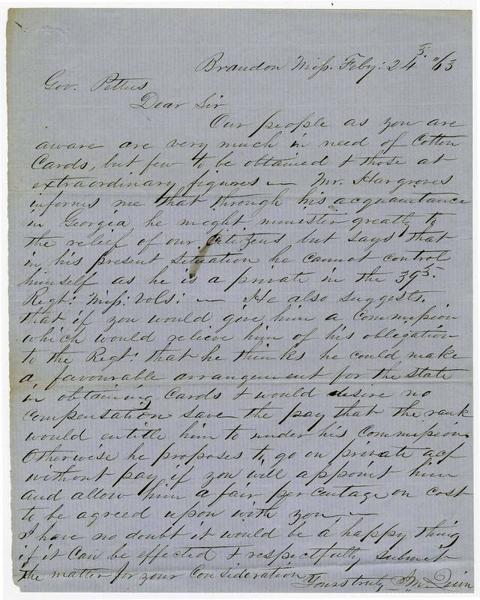 Brandon Miss. Feby: 24th /63
Gov. Pettus
Dear Sir
Our people as you are
aware are very much in need of Cotton
Cards, but few to be obtained & those at
extraordinary figures — Mr. Hargroves
informs me that through his acquaintance
in Georgia he might minister greatly to
the relief of our Citizens but says that
in his present situation he cannot control
himself as he is a private in the 39th
Regt: Miss: Vols: — He also suggests
that if you would give him a Commission
which would relieve him of his obligation
to the Regt. that he thinks he could make
a favourable arrangement for the state
in obtaining Cards & would desire no
compensation save the pay that the rank
would entitle him to under his Commission
Otherwise he proposes to go on private acf
without pay if you will appoint him
and allow him a fair per centage on cost
to be agreed upon with you —
I have no doubt it would be a happy thing
if it can be effected & respectfully submit
the matter for your Consideration
Yours truly